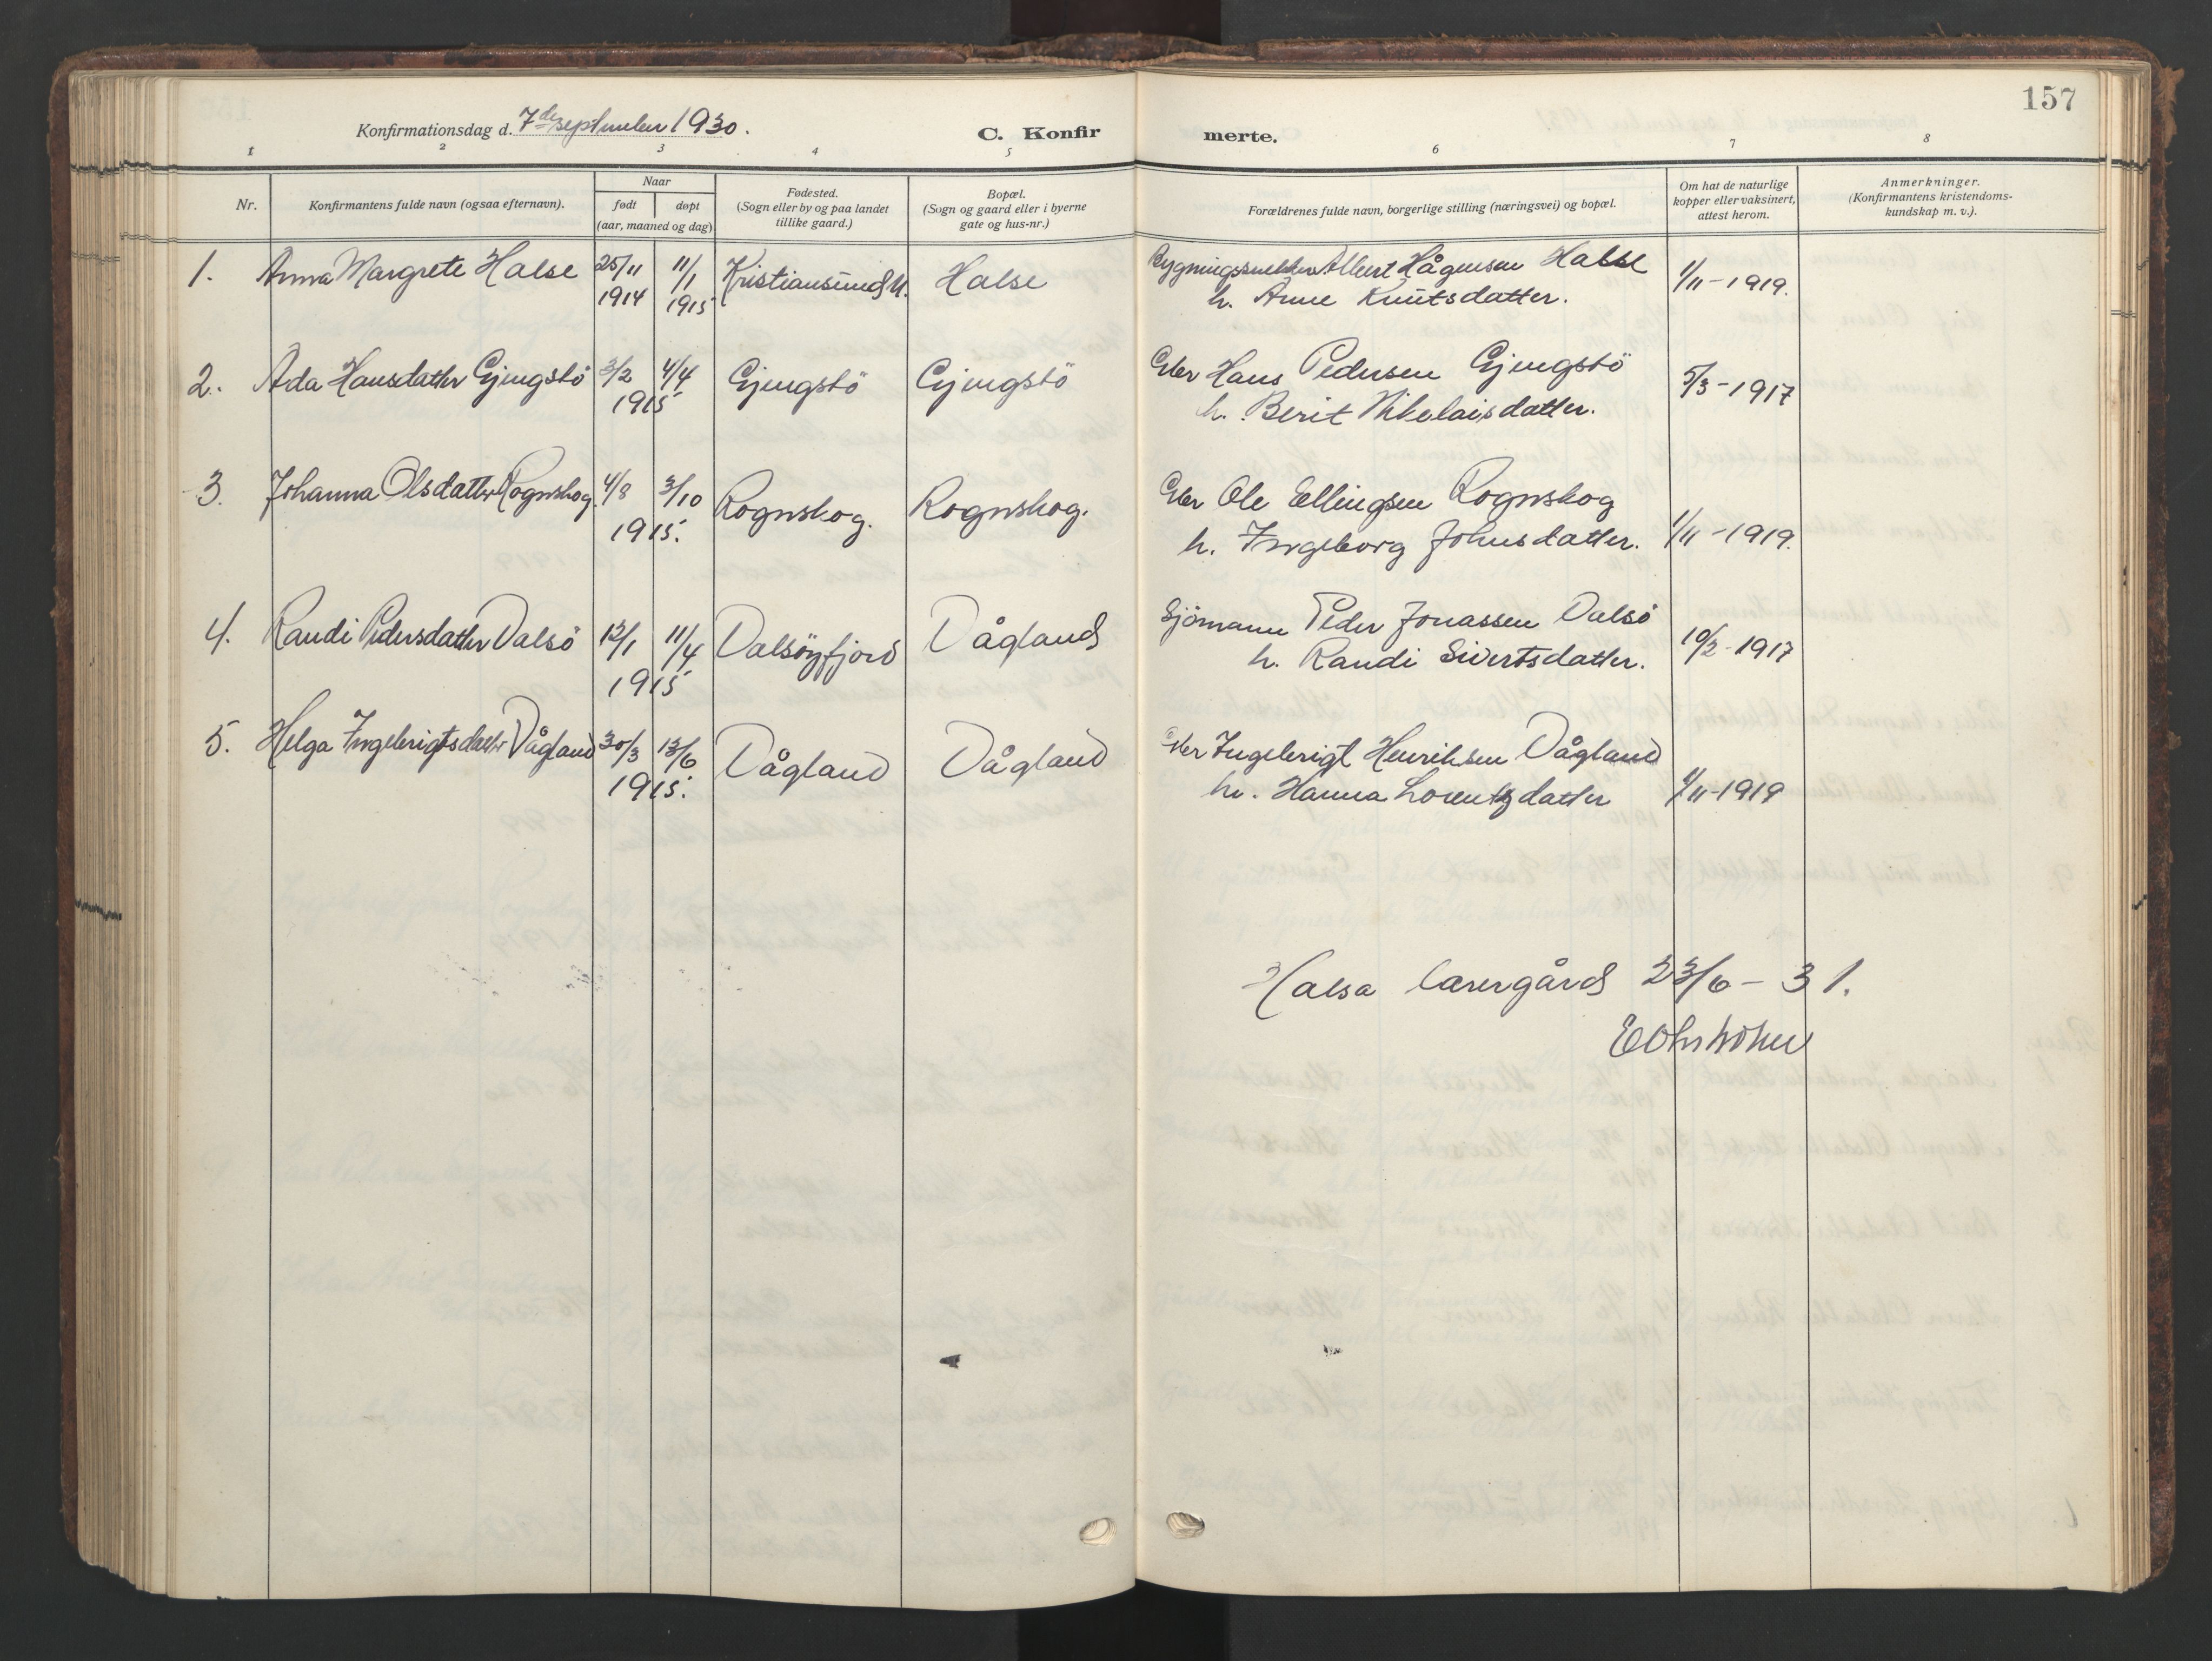 157
Konfirmationsdag d. 7de september 1930.
C. Konfir merte.
1 2 3 4 5 6 7 8
Nr. Konfirmantens fulde navn (ogsaa efternavn). Naar født døpt (aar, maaned og dag) Fødested. (Sogn eller by og paa landet tillike gaard.) Bopæl. (Sogn og gaard eller i byerne gate og hus-nr.) Forældrenes fulde navn, borgerlige stilling (næringsvei) og bopæl. Om hat de naturlige kopper eller vaksinert, attest herom. Anmerkninger. (Konfirmantens kristendoms-kundskap m. v.).
1. Anna Margrete Halse 25/11 1914 11/1 1915 Kristiansund N. Halse Albert Hågensen Halse
h. Anne Knutsdatter. 1/11-1919.
2. Ada Hansdatter Gjengstö 3/2 4/4 1915 Gjengstö Gjengstö Gbr Hans Pedersen Gjengstö
h. Berit Nikolaisdatter. 5/3-1917
3. Johanna Olsdatter Rognskog. 4/8 3/10 1915. Rognskog. Rognskog. Gbr Ole Ellingsen Rognskog
h. Ingeborg Johnsdatter. 1/11-1919.
4. Randi Pedersdatter Valsö 12/1 11/4 1915 Valsöyfjord Vågland Sjömann Peder Jonassen Valsö
h. Randi Sivertsdatter. 10/2-1917
5. Helga Ingebrigtsdatter Vågland 30/3 13/6 1915. Vågland Vågland Ingebrigt Henriksen Vågland
h. Hanna Lorentsdatter 1/11-1919
Halsa 23/6-31.